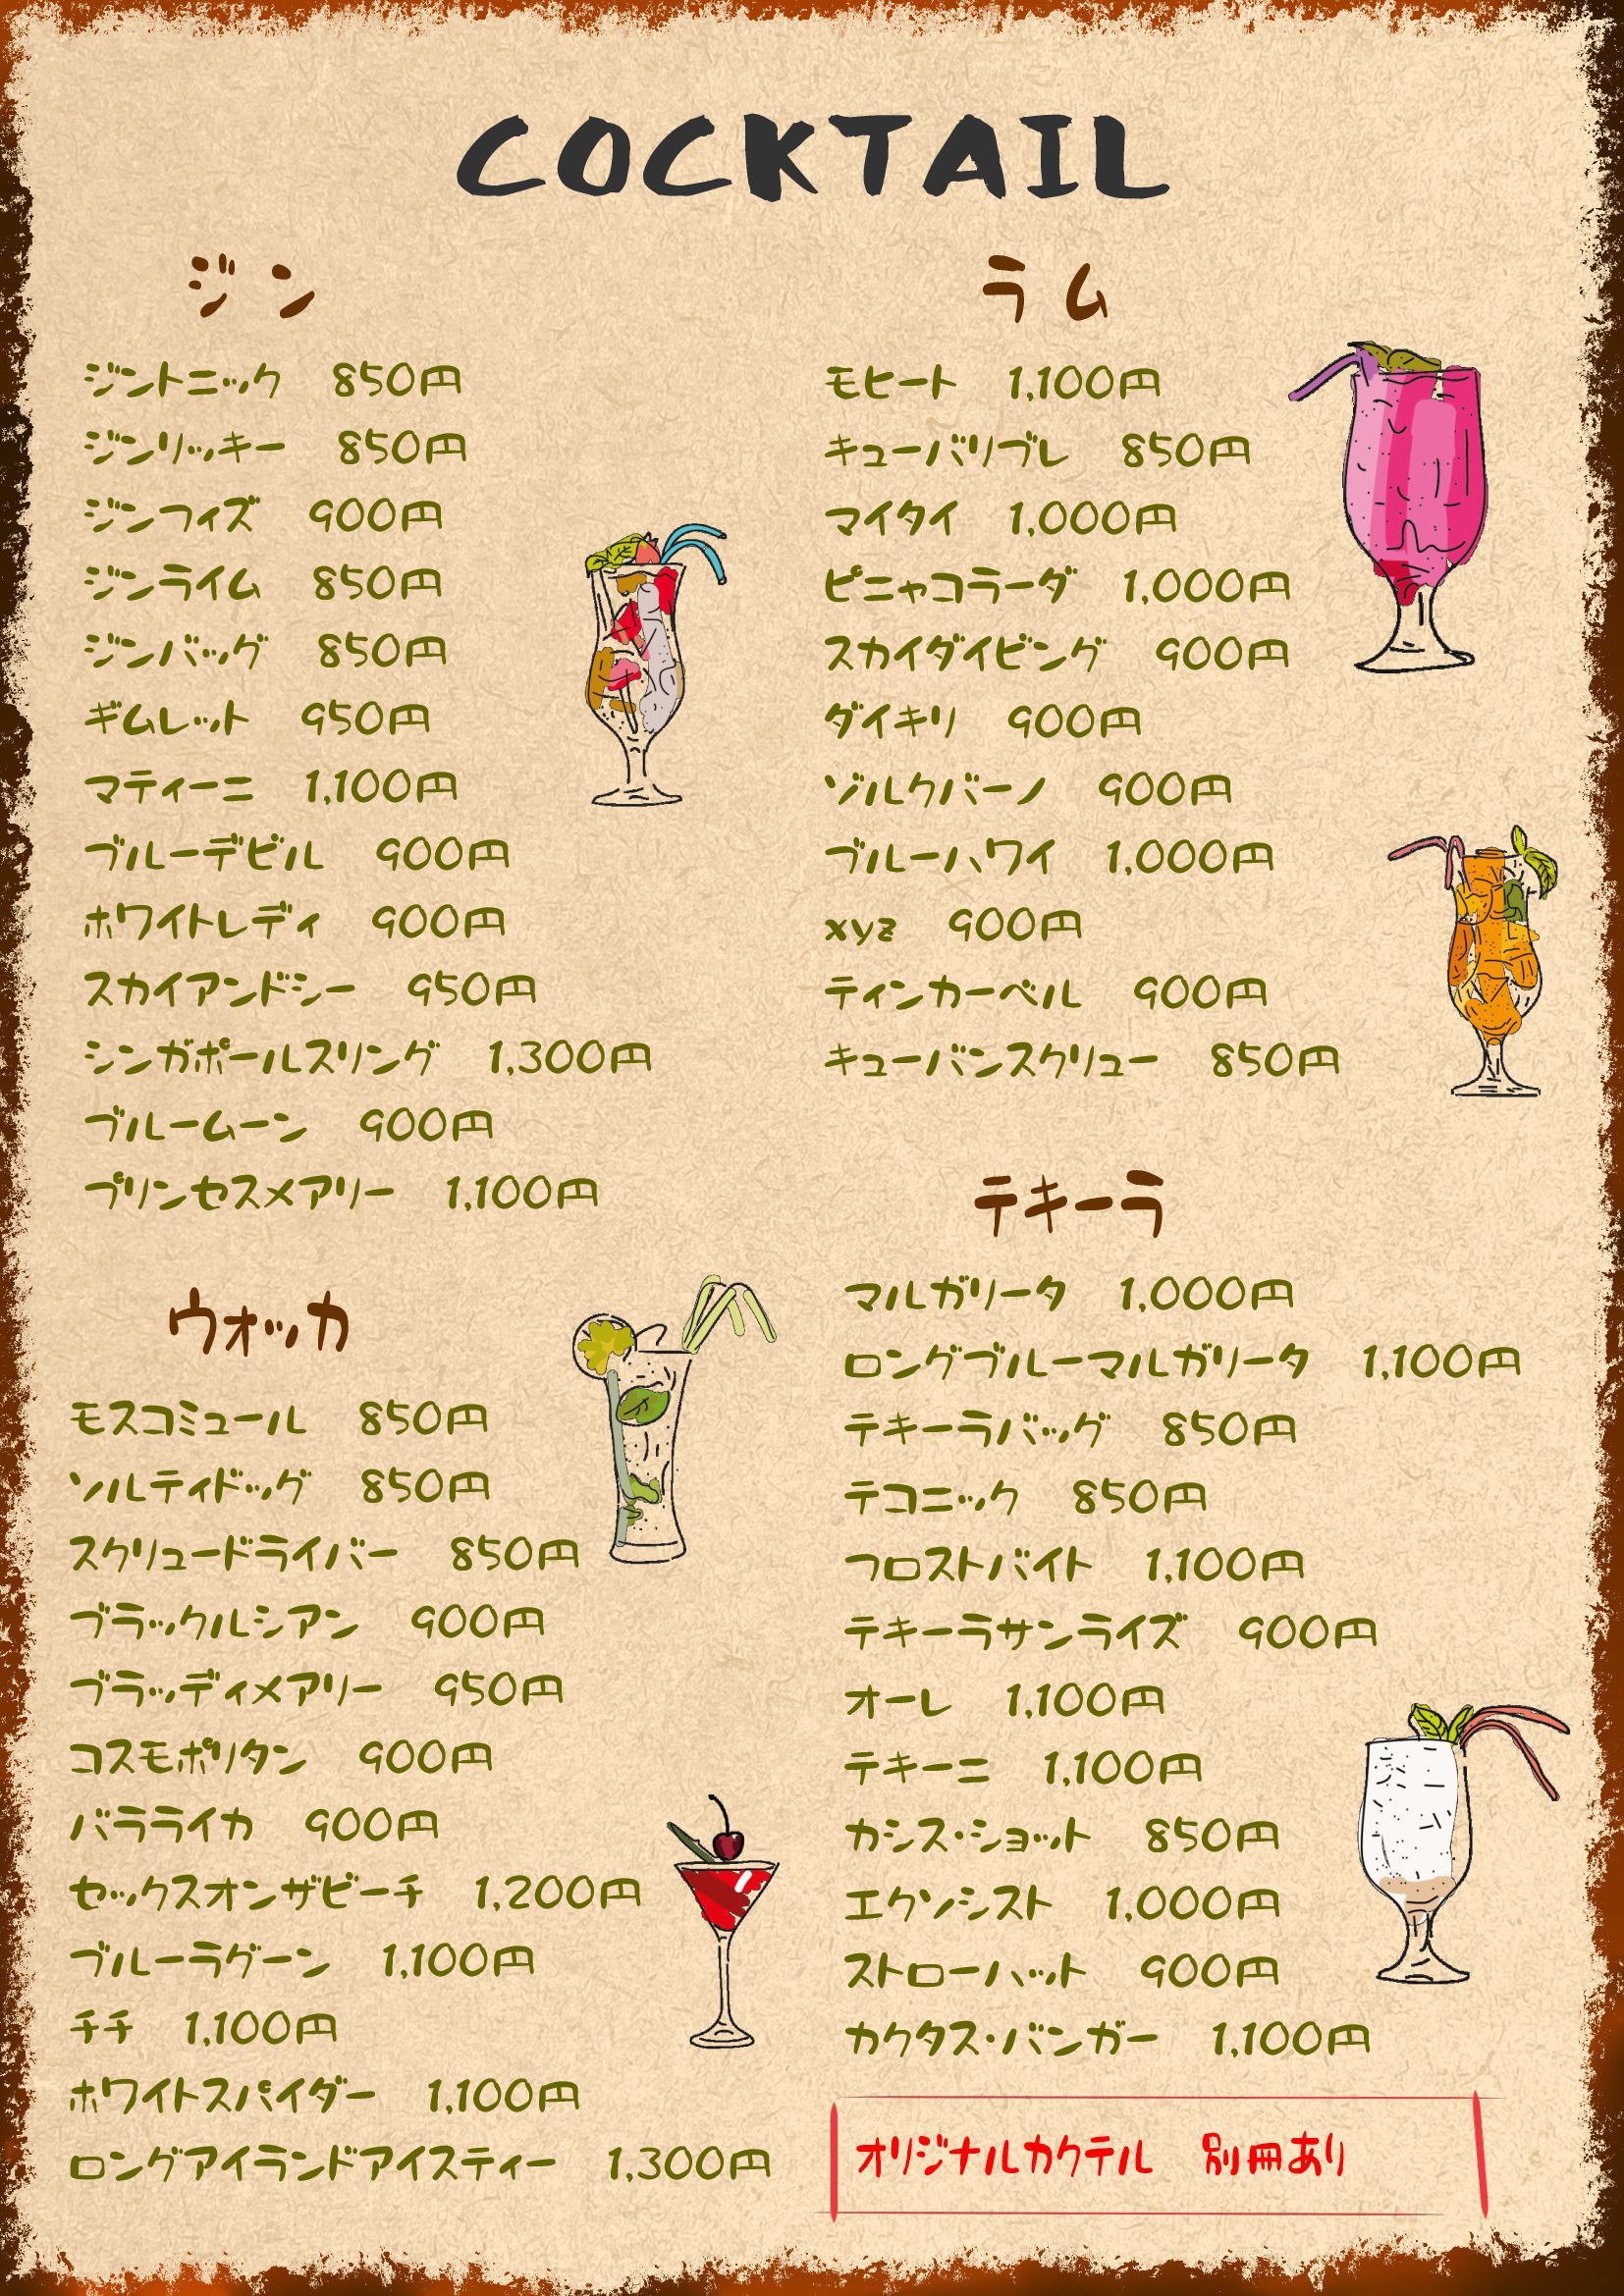 COCKTAIL
ジン
ジントニック　850円
ジンリッキー　850円
ジンフィズ　900円
ジンライム　850円
ジンバッグ　850円
ギムレット　950円
マティーニ　1,100円
ブルーデビル　900円
ホワイトレディ　900円
スカイアンドシー　950円
シンガポールスリング　1,300円
ブルームーン　900円
プリンセスメアリー　1,100円
ウォッカ
モスコミュール　850円
ソルティドッグ　850円
スクリュードライバー　850円
ブラックルシアン　900円
ブラッディメアリー　950円
コスモポリタン　900円
バラライカ　900円
セックスオンザビーチ　1,200円
ブルーラグーン　1,100円
チチ　1,100円
ホワイトスパイダー　1,100円
ロングアイランドアイスティー　1,300円
ラム
モヒート　1,100円
キューバリブレ　850円
マイタイ　1,000円
ピニャコラーダ　1,000円
スカイダイビング　900円
ダイキリ　900円
ゾルクバーノ　900円
ブルーハワイ　1,000円
xyz　900円
ティンカーベル　900円
キューバンスクリュー　850円
テキーラ
マルガリータ　1,000円
ロングブルーマルガリータ　1,100円
テキーラバッグ　850円
テコニック　850円
フロストバイト　1,100円
テキーラサンライズ　900円
オーレ　1,100円
テキーニ　1,100円
カシス・ショット　850円
エクソシスト　1,000円
ストローハット　900円
カクタス・バンガー　1,100円
オリジナルカクテル　別冊あり